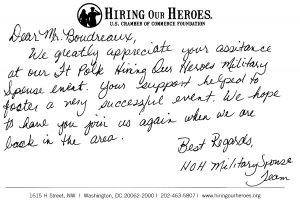 HIRING OUR HEROES.
U.S. CHAMBER OF COMMERCE FOUNDATION
Dear Mr. Boudreaux,
We greatly appreciate your assitance
at our Ft Polk Hiring Our Heroes Military
Spouse event. Your support helped to
foster a very successful event. We hope
to have you join us again when we are
back in the area.
Best Regards,
HOH Military Spouse
Team
1615 H Street, NW | Washington, DC 20062-2000 | 202-463-5807 | www.hiringourheroes.org